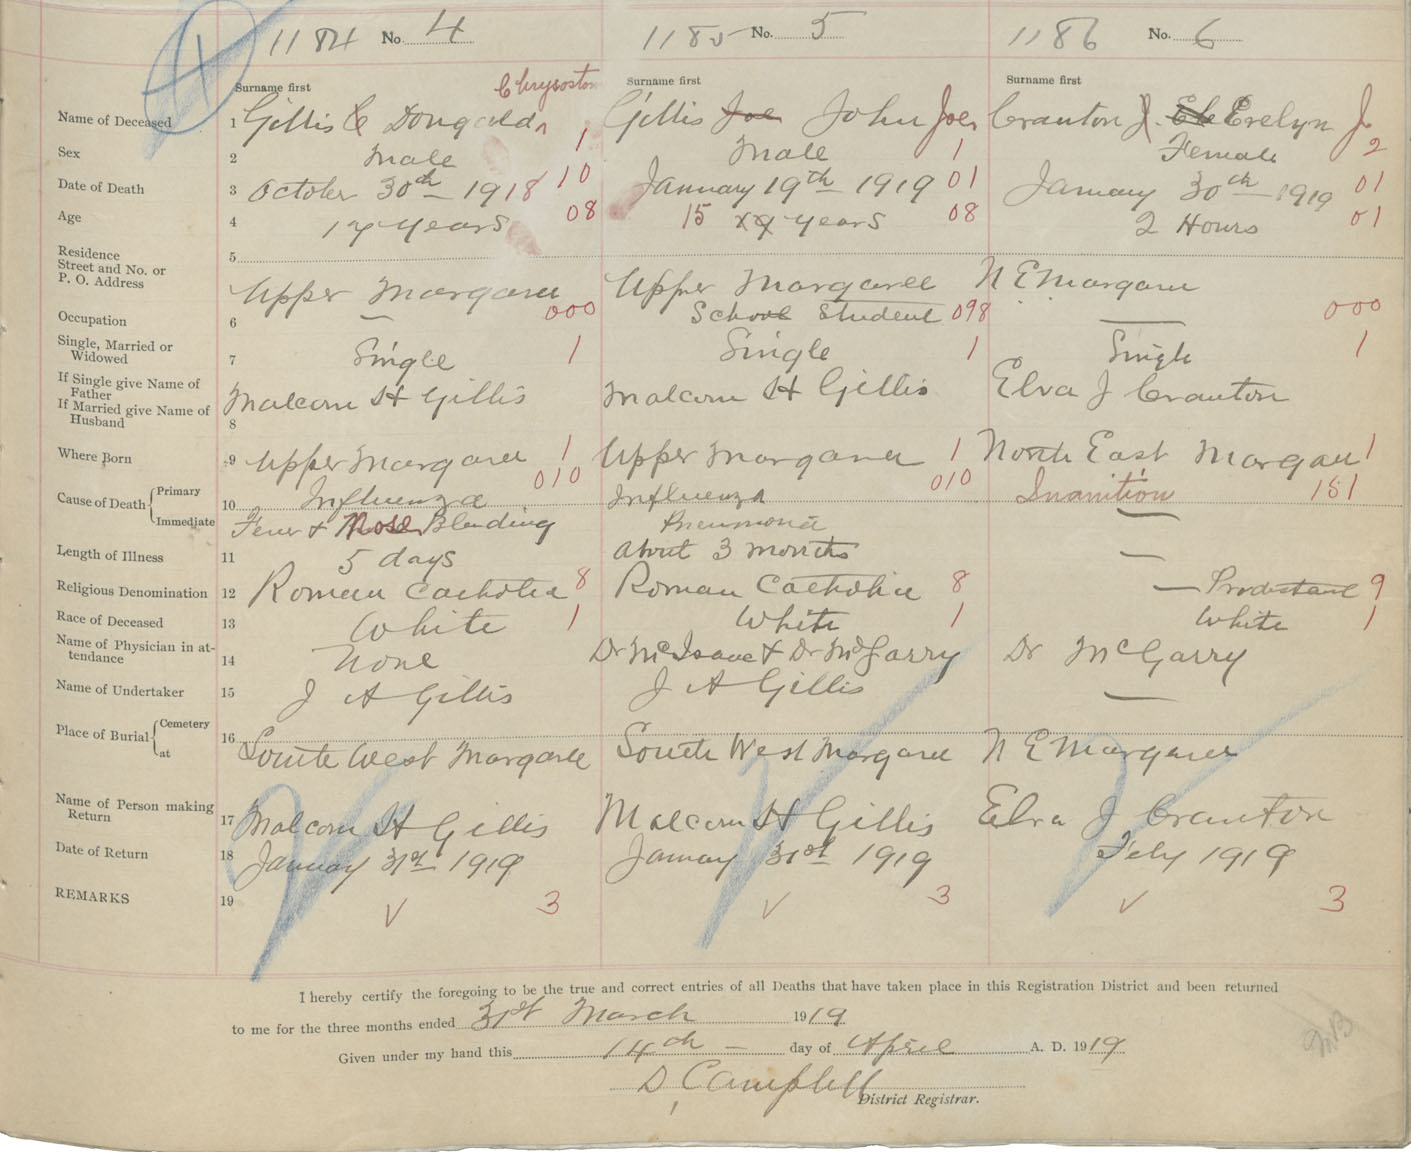 1184 No. 4
1185 No. 5
1186 No. 6
Surname first
Surname first
Surname first
Name of Deceased 1 Gillis C Dougald Chrysostom 1
Gillis Joe John Joe 1
Cranton J. Evelyn J. 2
Sex 2 Male
Male
Female
Date of Death 3 October 30th 1918 10
January 19th 1919 01
January 30th 1919 01
Age 4 17 years 08
15 years 08
2 Hours 01
Residence
Street and No. or
P. O. Address 5
Upper Margaree
Upper Margaree
N E Margaree
Occupation 6 — 000
School Student 098
— 000
Single, Married or
Widowed 7 Single 1
Single 1
Single 1
If Single give Name of
Father
If Married give Name of
Husband
8
Malcom H Gillis
Malcom H Gillis
Elva J Cranton
Where Born 9 Upper Margaree 1
Upper Margaree 1
North East Margaree 1
Cause of Death { Primary 10 Influenza 010
Influenza 010
Inanition 181
Immediate Fever & Nose Bleeding
Pneumonia
—
Length of Illness 11 5 days
About 3 months
—
Religious Denomination 12 Roman Catholic 8
Roman Catholic 8
— Prodistant 9
Race of Deceased 13 White 1
White 1
White 1
Name of Physician in at-
tendance 14 None
Dr McIsaac & Dr McGarry
Dr McGarry
Name of Undertaker 15 J A Gillis
J A Gillis
—
Place of Burial { Cemetery
at
16
South West Margaree
South West Margaree
N E Margaree
Name of Person making
Return 17 Malcom H Gillis
Malcom H Gillis
Elva J Cranton
Date of Return 18 January 31st 1919
January 31st 1919
Feby 1919
REMARKS 19 3
3
3
I hereby certify the foregoing to be the true and correct entries of all Deaths that have taken place in this Registration District and been returned
to me for the three months ended 31st March 1919
Given under my hand this 14th — day of April A. D. 1919
D, Campbell
District Registrar.